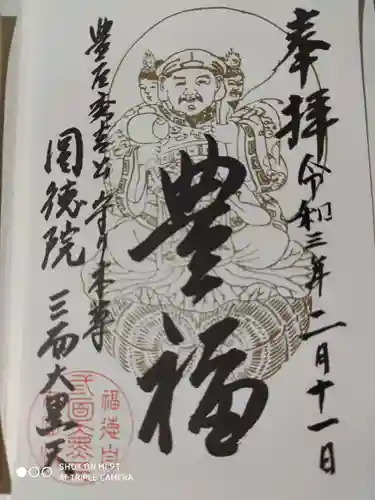 奉拝
令和三年二月十一日
豊福
豊臣秀吉公守り本尊
圓徳院
三面大黒天
SHOT ON MI 9T
AI TRIPLE CAMERA